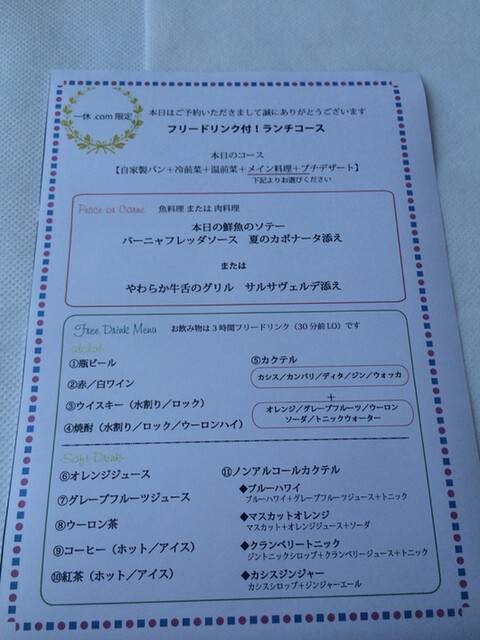 一休.com限定
本日はご予約いただきまして誠にありがとうございます
フリードリンク付！ランチコース
本日のコース
【自家製パン＋冷前菜＋温前菜＋メイン料理＋プチデザート】
下記よりお選びください
Pesce or Carne 魚料理 または 肉料理
本日の鮮魚のソテー
バーニャフレッダソース 夏のカポナータ添え
または
やわらか牛舌のグリル サルサヴェルデ添え
Free Drink Menu お飲み物は3時間フリードリンク（30分前LO）です
alchol
①瓶ビール
②赤／白ワイン
③ウイスキー（水割り／ロック）
④焼酎（水割り／ロック／ウーロンハイ）
⑤カクテル
カシス／カンパリ／ディタ／ジン／ウォッカ
＋
オレンジ／グレープフルーツ／ウーロン
ソーダ／トニックウォーター
Soft Drink
⑥オレンジジュース
⑦グレープフルーツジュース
⑧ウーロン茶
⑨コーヒー（ホット／アイス）
⑩紅茶（ホット／アイス）
⑪ノンアルコールカクテル
◆ブルーハワイ
ブルーハワイ＋グレープフルーツジュース＋トニック
◆マスカットオレンジ
マスカット＋オレンジジュース＋ソーダ
◆クランベリートニック
ジントニックシロップ＋クランベリージュース＋トニック
◆カシスジンジャー
カシスシロップ＋ジンジャーエール